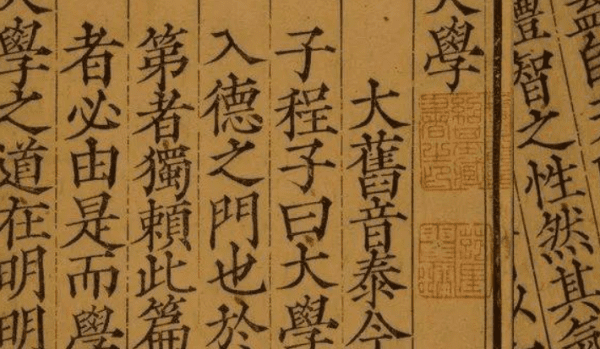 禮智之性然其氣
大學
大舊音泰今
子程子曰大學
入德之門也於
第者獨賴此篇
者必由是而學
學之道在明明